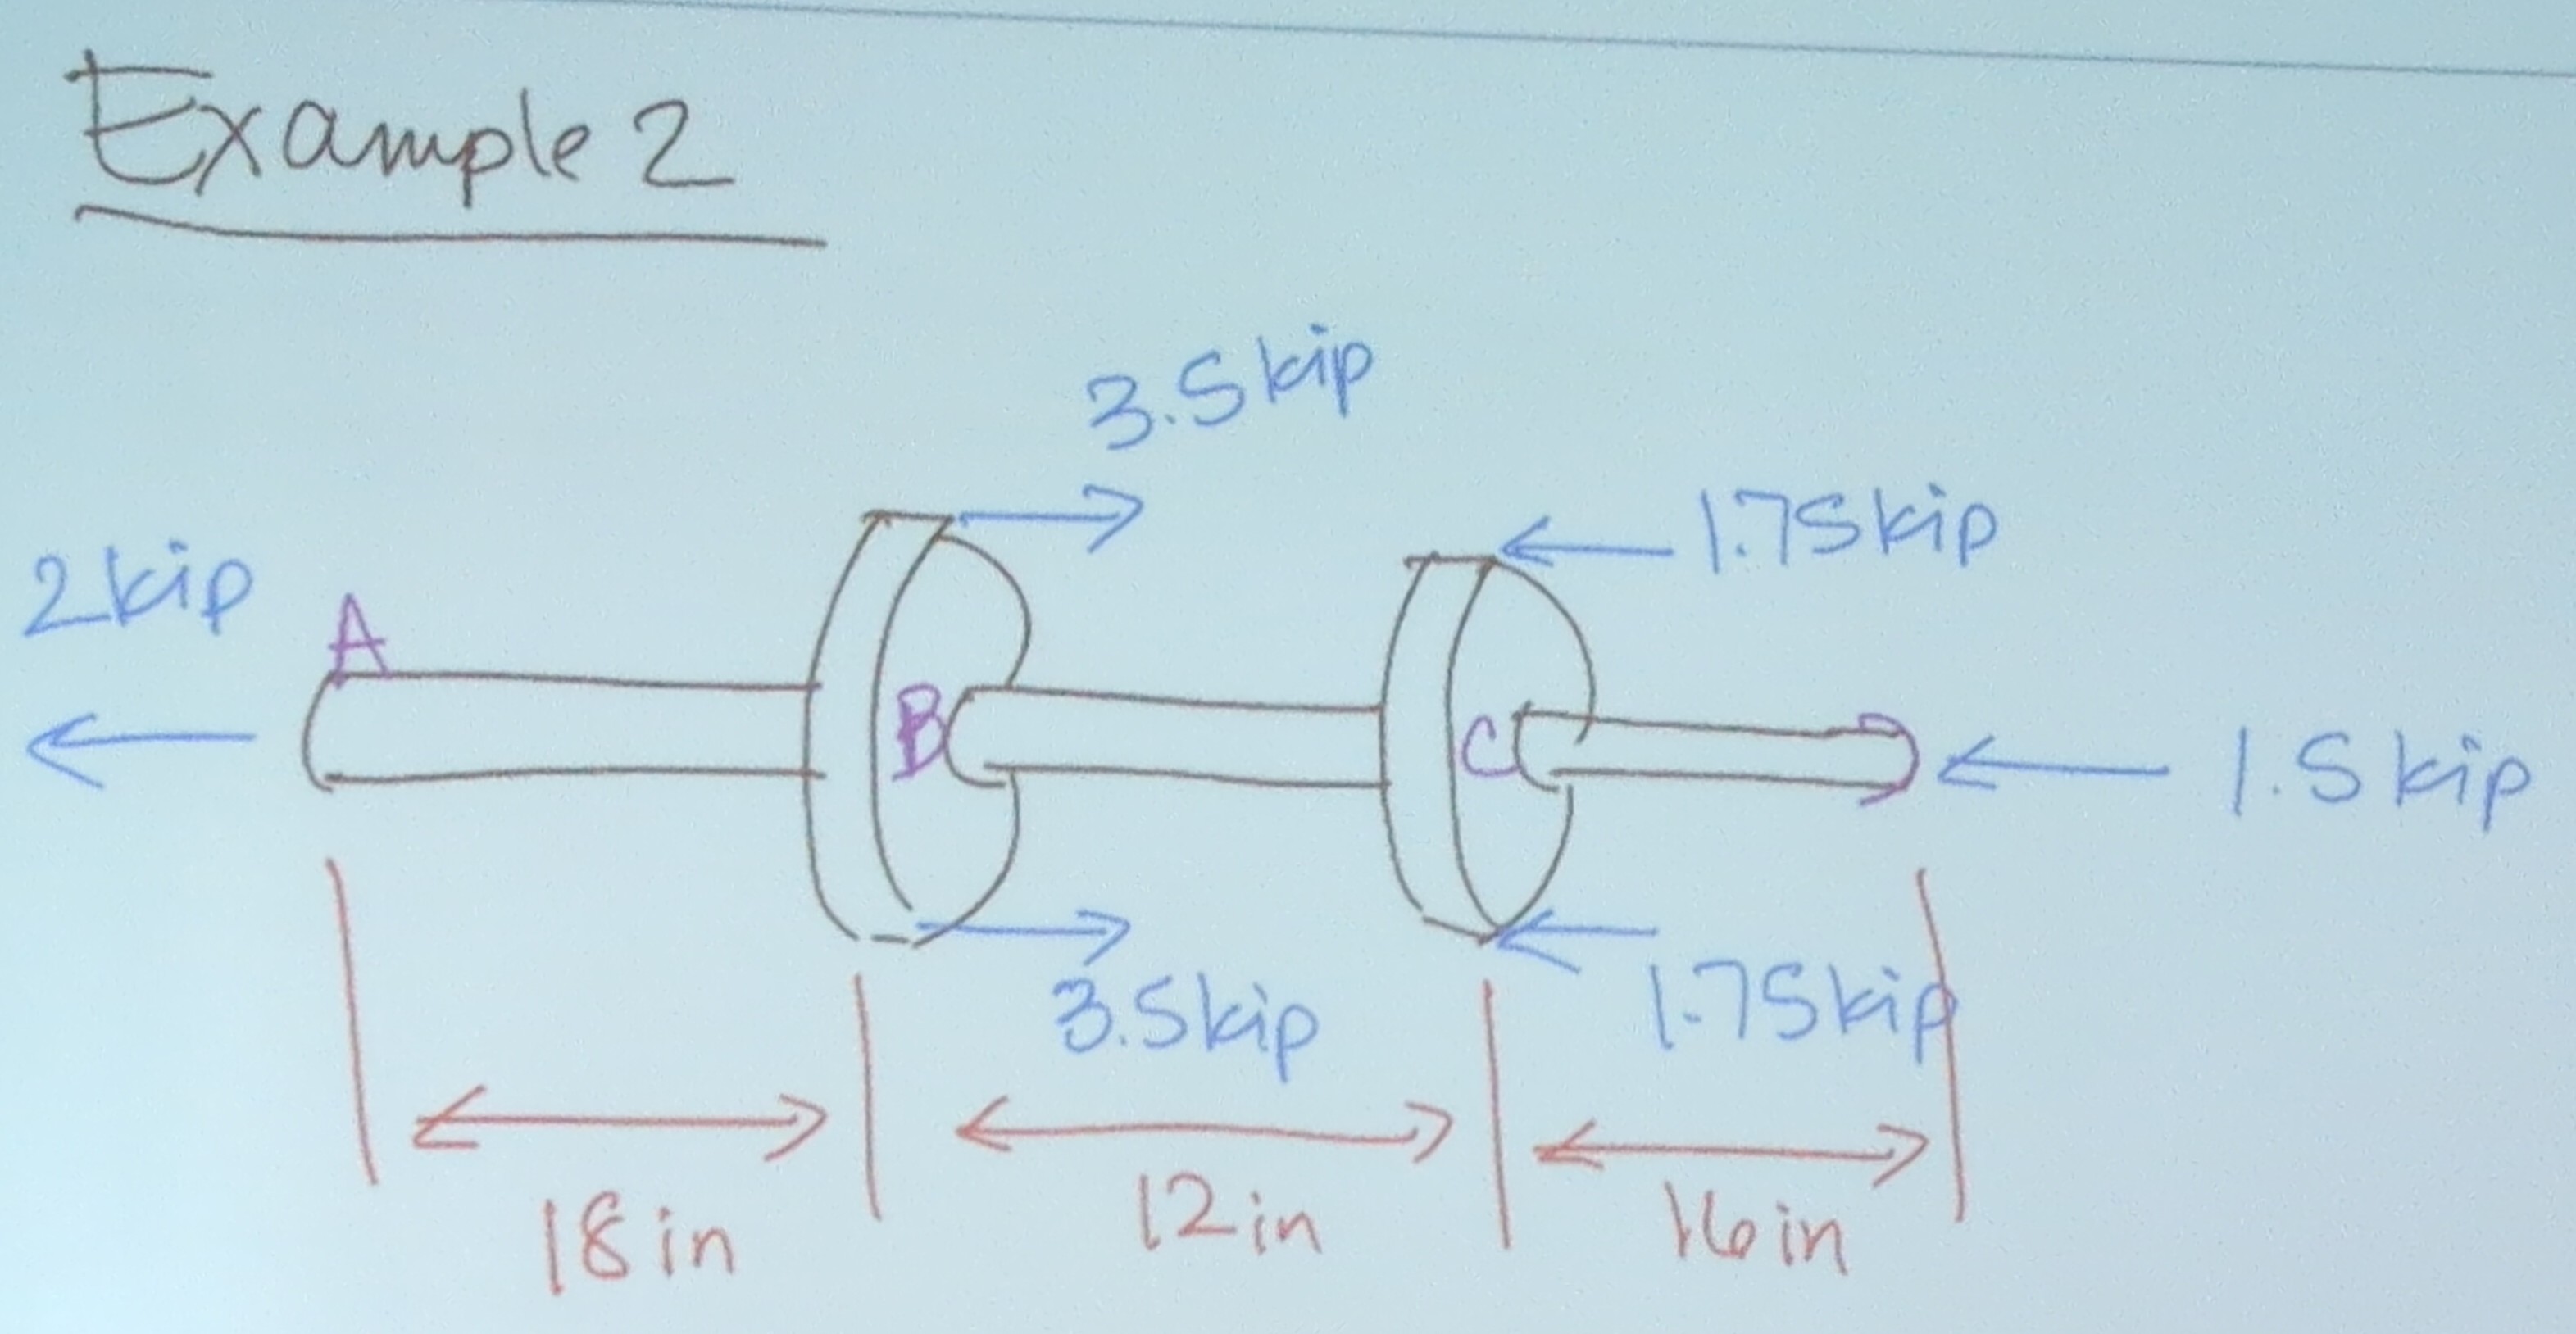 Example 2
3.5 kip
1.75 kip
2 kip
A
B
C
D
1.5 kip
3.5 kip
1.75 kip
18 in
12 in
16 in